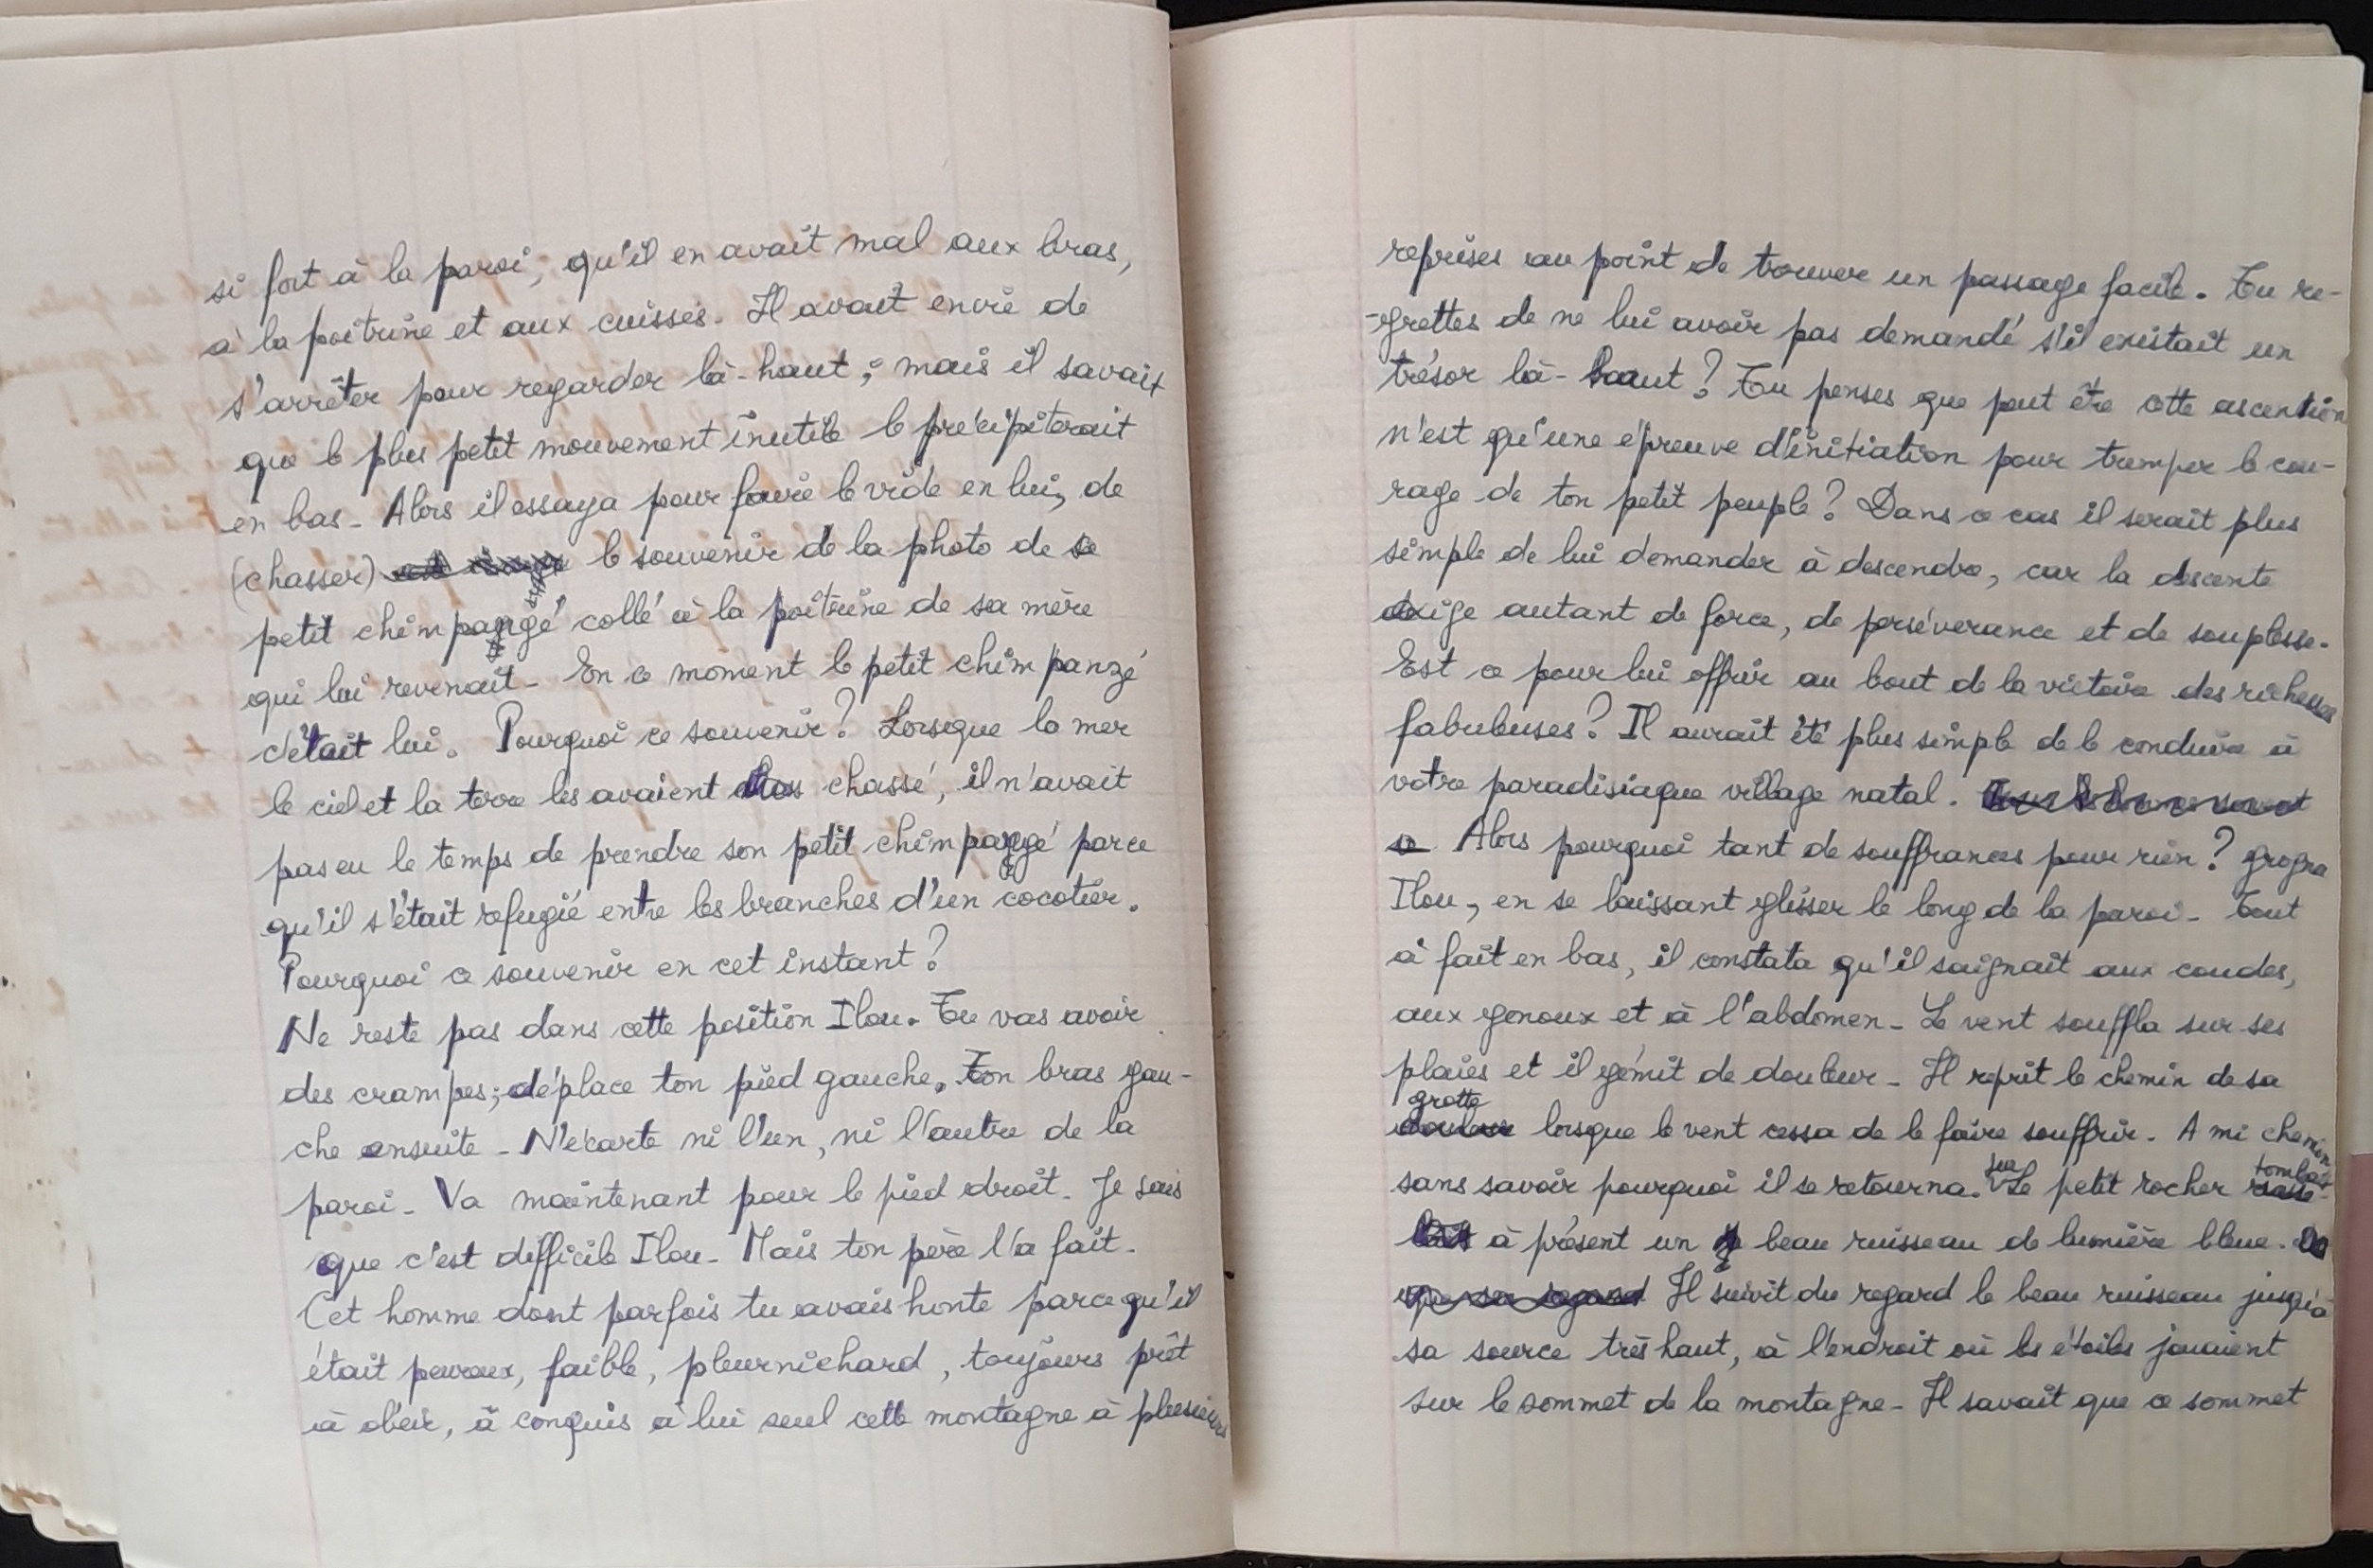 si fort à la paroi, qu'il en avait mal aux bras,
à la poitrine et aux cuisses. Il avait envie de
s'arrêter pour regarder là-haut ; mais il savait
que le plus petit mouvement inutile le précipiterait
en bas - Alors il essaya pour faire le vide en lui, de
(chasser) le souvenir de la photo de se
petit chimpanzé collé à la poitrine de sa mère
qui lui revenait - En ce moment le petit chimpanzé
c'était lui. Pourquoi ce souvenir ? Lorsque la mer
le ciel et la terre les avaient chassé, il n'avait
pas eu le temps de prendre son petit chimpanzé parce
qu'il s'était refugié entre les branches d'un cocotier.
Pourquoi ce souvenir en cet instant ?
Ne reste pas dans cette position Ilou. Tu vas avoir
des crampes ; déplace ton pied gauche. Ton bras gau-
che ensuite - N'écarte ni l'un, ni l'autre de la
paroi - Va maintenant pour le pied droit - Je sais
que c'est difficile Ilou - Mais ton père l'a fait -
Cet homme dont parfois tu avais honte parce qu'il
était peureux, faible, pleurnichard, toujours prêt
à obéir, à conquis à lui seul cette montagne à plusieurs
reprises au point de trouver un passage facile. Tu re-
-grettes de ne lui avoir pas demandé s'il existait un
trésor là-haut ? Tu penses que peut être cette ascention
n'est qu'une épreuve d'initiation pour tremper le cou-
rage de ton petit peuple ? Dans ce cas il serait plus
simple de lui demander à descendre, car la descente
exige autant de force, de persévérance et de souplesse -
Est ce pour lui offrir au bout de la victoire des richesses
fabuleuses ? Il aurait été plus simple de le conduire à
votre paradisiaque village natal.
Alors pourquoi tant de souffrances pour rien ? grogna
Ilou, en se laissant glisser le long de la paroi - Tout
à fait en bas, il constata qu'il saignait aux coudes,
aux genoux et à l'abdomen - Le vent souffla sur ses
plaies et il gémit de douleur - Il reprit le chemin de sa
grotte lorsque le vent cessa de le faire souffrir. A mi chemin
sans savoir pourquoi il se retourna. sur Le petit rocher tombait
à présent un beau ruisseau de lumière bleue.
Il suivit du regard le beau ruisseau jusqu'à
sa source très haut, à l'endroit où les étoiles jouaient
sur le sommet de la montagne - Il savait que ce sommet